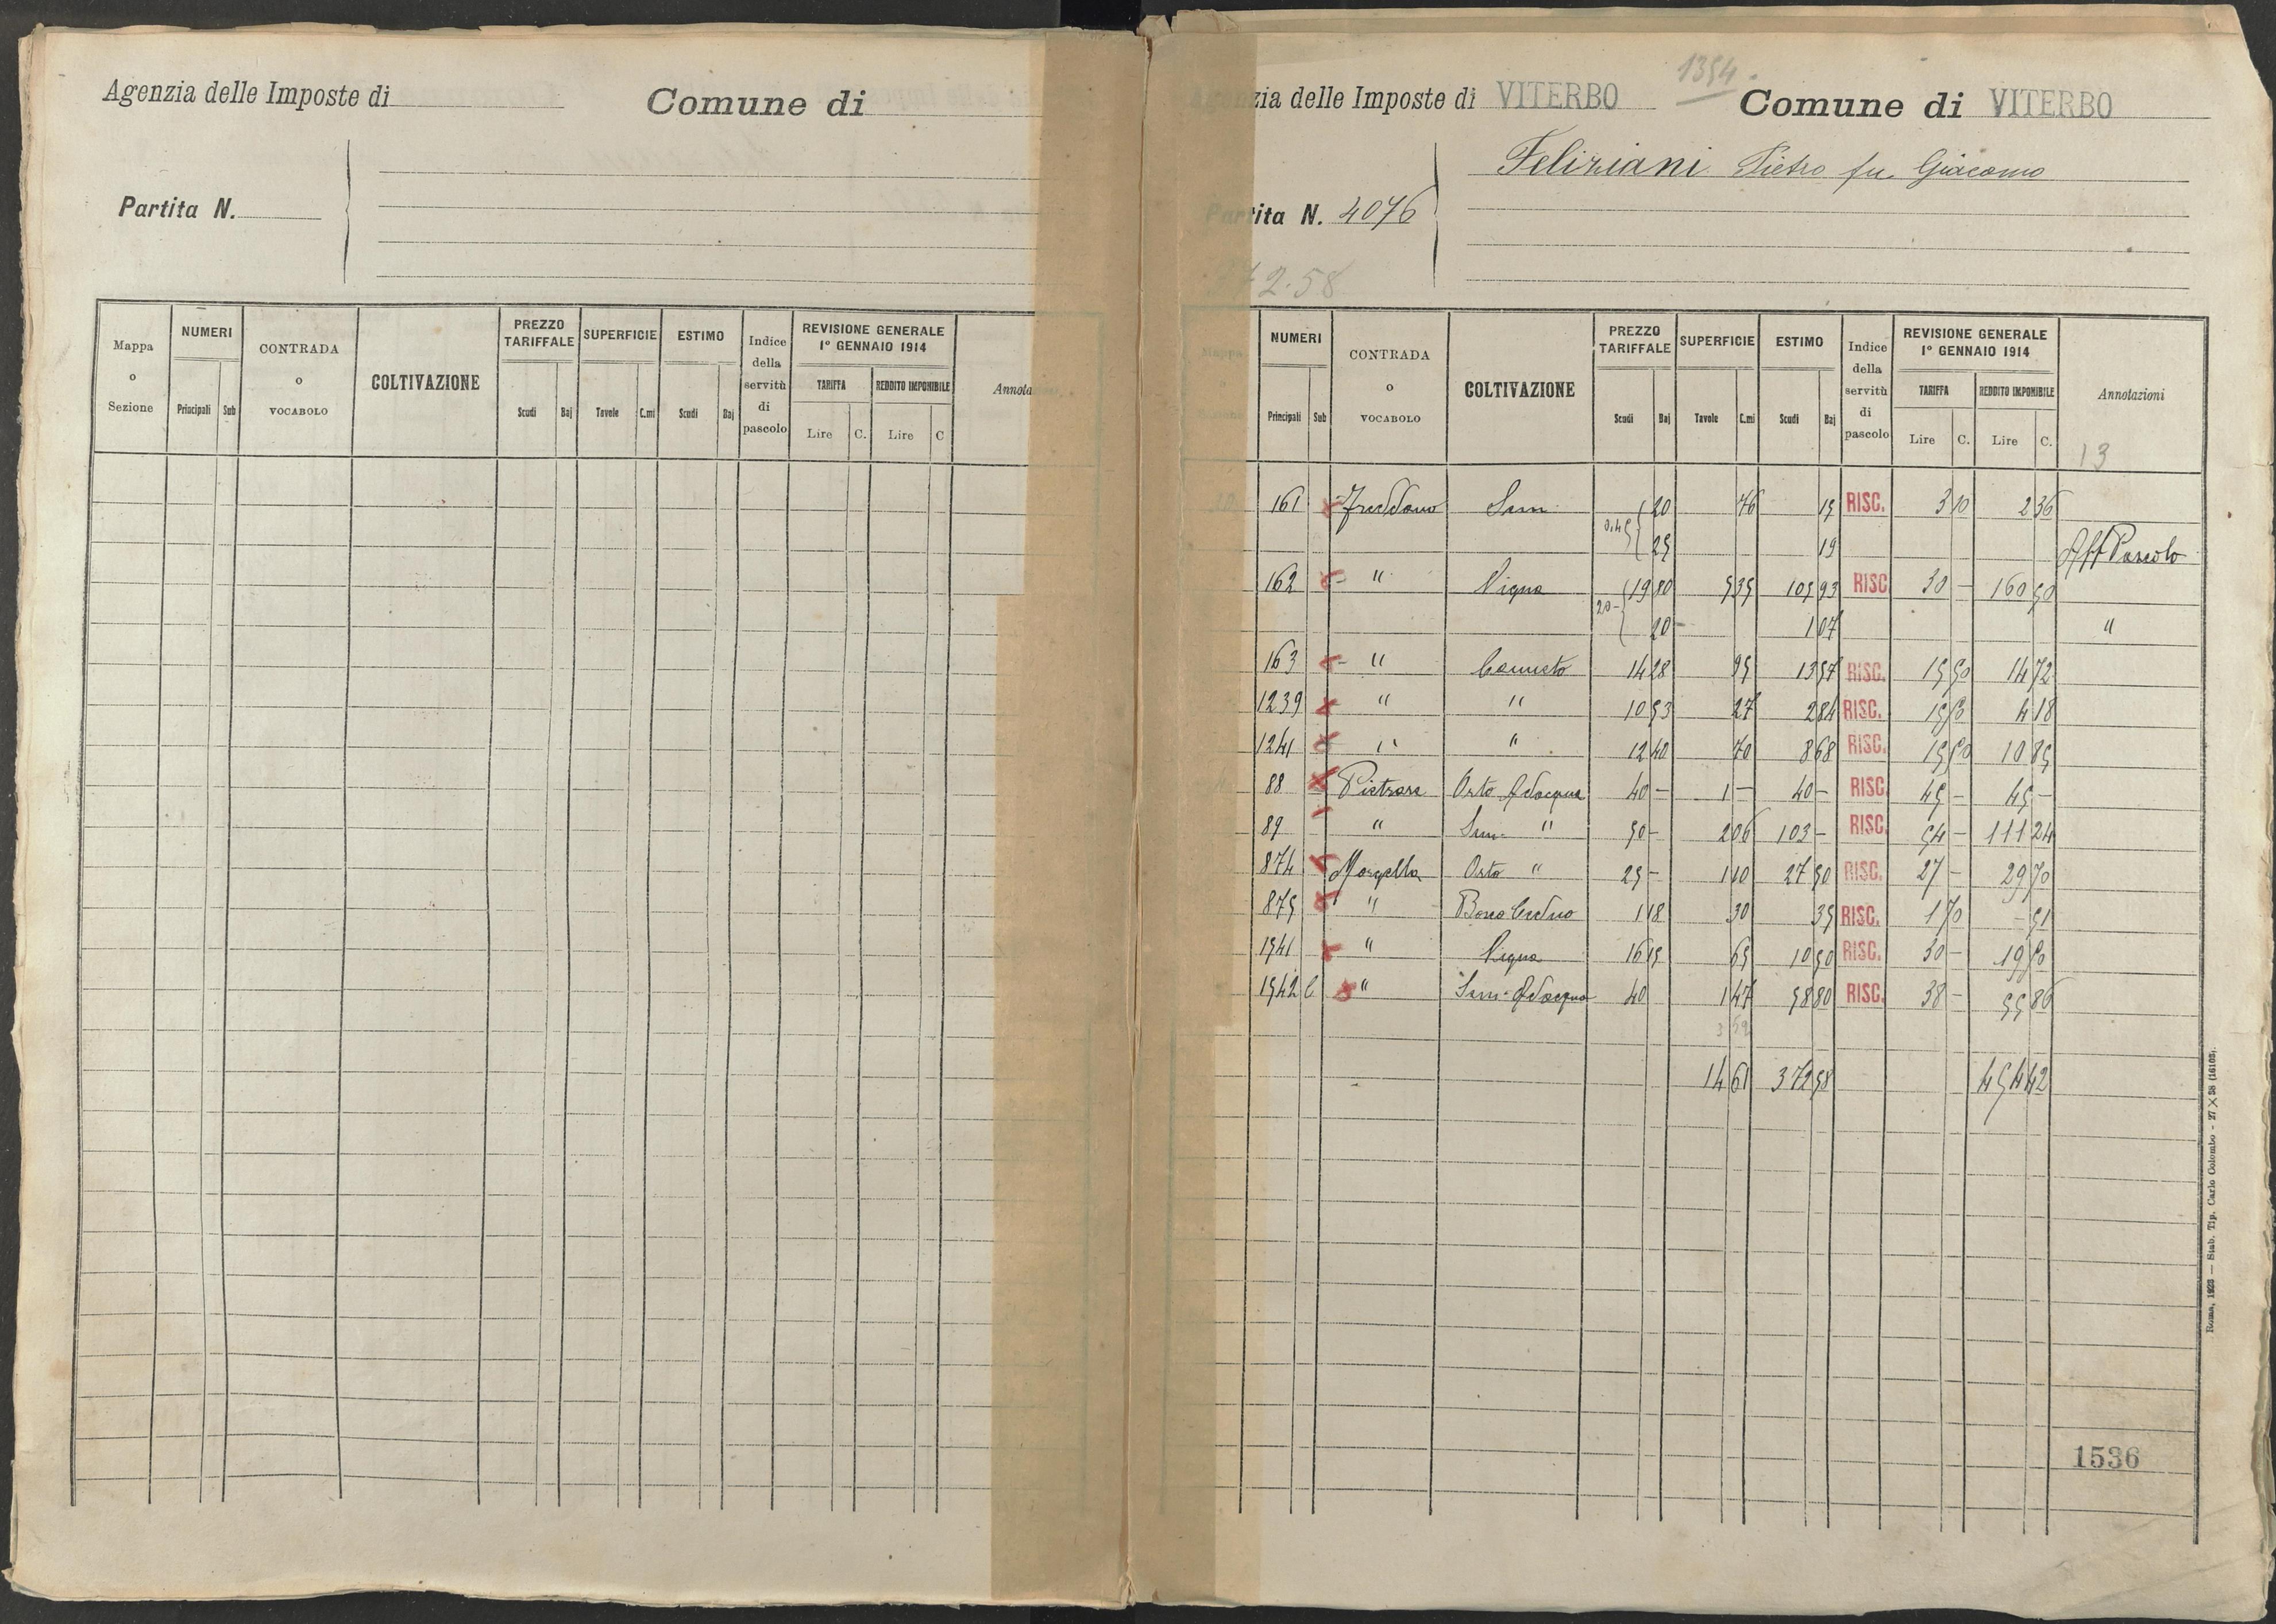 Agenzia delle Imposte di
Comune di
Partita N.
Mappa o Sezione
NUMERI
Principali Sub
CONTRADA o VOCABOLO
COLTIVAZIONE
PREZZO TARIFFALE
Scudi Baj
SUPERFICIE
Tavole C.mi
ESTIMO
Scudi Baj
Indice della servitù di pascolo
REVISIONE GENERALE
1° GENNAIO 1914
TARIFFA
Lire C.
REDDITO IMPONIBILE
Lire C
1354
zia delle Imposte di VITERBO
Comune di VITERBO
Feliziani Pietro fu Giacomo
Partita N. 4076
72.58
NUMERI
Principali Sub
CONTRADA o VOCABOLO
COLTIVAZIONE
PREZZO TARIFFALE
Scudi Baj
SUPERFICIE
Tavole C.mi
ESTIMO
Scudi Baj
Indice della servitù di pascolo
REVISIONE GENERALE
1° GENNAIO 1914
TARIFFA
Lire C.
REDDITO IMPONIBILE
Lire C.
Annotazioni
13
161 Freddano Sem 20 76 15 RISC. 3 10 2 36
0.45 25 19 Aff Pascolo
162 " Vigna 19 80 5 35 105 93 RISC 30 - 160 50
20- 20 - 1 07 "
163 - " Canneto 14 28 95 13 57 RISC. 15 50 14 72
1239 " " 10 53 27 2 84 RISC. 15 50 4 18
1241 " " 12 40 70 8 68 RISC. 15 50 10 85
88 Pietrare Orto Adacqua 40 - 1 - 40 - RISC. 45 - 45 -
89 " Sem. " 50 - 2 06 103 - RISC. 54 - 111 24
874 Orto " 25 - 1 10 27 50 RISC. 27 - 29 70
875 " Bosco Ceduo 1 18 30 35 RISC. 1 70 - 51
1541 " Vigna 16 15 65 10 50 RISC. 30 - 19 50
1542 " Sem. Adacqua 40 1 47 58 80 RISC. 38 - 55 86
14 61 372 58 454 42
1536
Roma, 1923 — Stab. Tip. Carlo Colombo - 27 × 38 (16105).